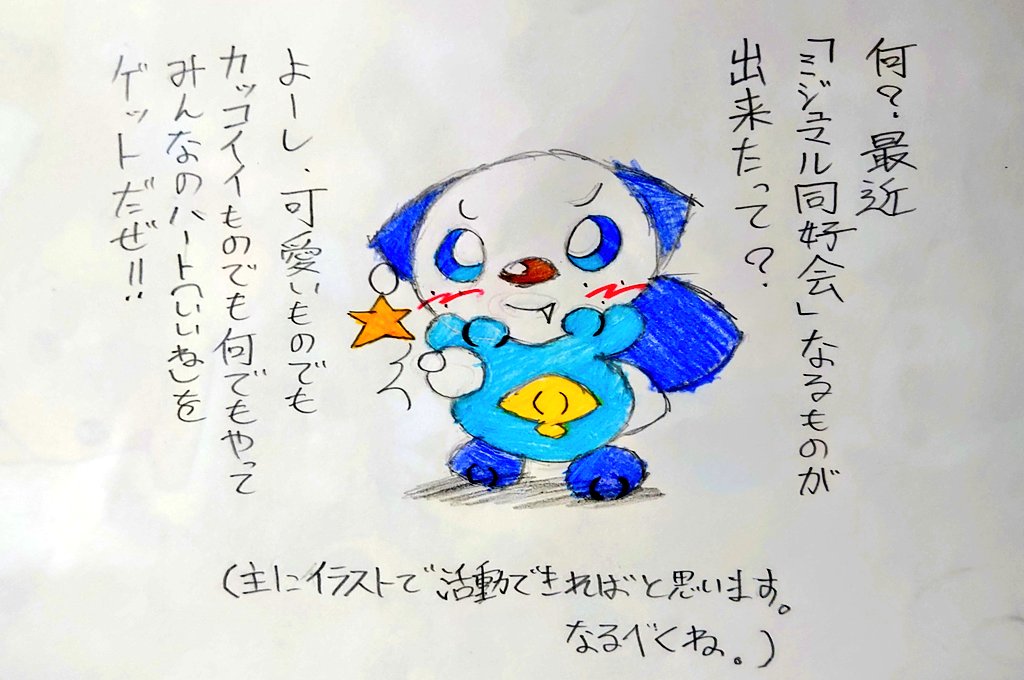 何?最近
「ミジュマル同好会」なるものが
出来たって?
よーし、可愛いものでも
カッコイイものでも何でもやって
みんなのハート(いいね)を
ゲットだぜ!!
(主にイラストで活動できればと思います。
なるべくね。)